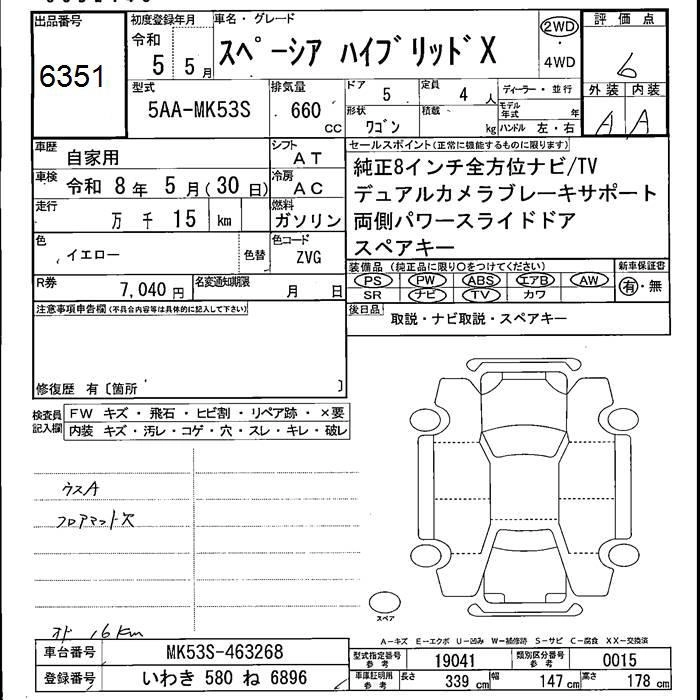 出品番号
6351
初度登録年月
令和
5 5月
車名・グレード
スペーシア ハイブリッドX
2WD
・
4WD
評価点
6
外装 内装
A A
型式
5AA-MK53S
排気量
660 cc
ドア 5
定員 4 人
形状 ワゴン
積載 kg
ディーラー・並行
モデル年式 年
ハンドル 左・右
車歴 自家用
シフト AT
車検 令和 8年 5月(30日)
冷房 AC
走行 万 千 15 km
燃料 ガソリン
色 イエロー
色替
色コード ZVG
R券 7,040円
名変通知期限 月 日
セールスポイント(正常に機能するものに限ります)
純正8インチ全方位ナビ/TV
デュアルカメラブレーキサポート
両側パワースライドドア
スペアキー
装備品 (純正品に限り○をつけてください)
PS PW ABS エアB AW
SR ナビ TV カワ
新車保証書
有・無
後日品 取説・ナビ取説・スペアキー
注意事項申告欄(不具合内容等は具体的に記入して下さい)
修復歴 有〔箇所 〕
検査員記入欄
FW キズ・飛石・ヒビ割・リペア跡・×要
内装 キズ・汚レ・コゲ・穴・スレ・キレ・破レ
ウスA
フロアマット欠
オド 16km
スペア
A-キズ E-エクボ U-凹み W-補修跡 S-サビ C-腐食 XX-交換済
車台番号 MK53S-463268
登録番号 いわき 580 ね 6896
型式指定番号 参考 19041
類別区分番号 参考 0015
車庫証明用 参考 長さ 339cm 幅 147cm 高さ 178cm